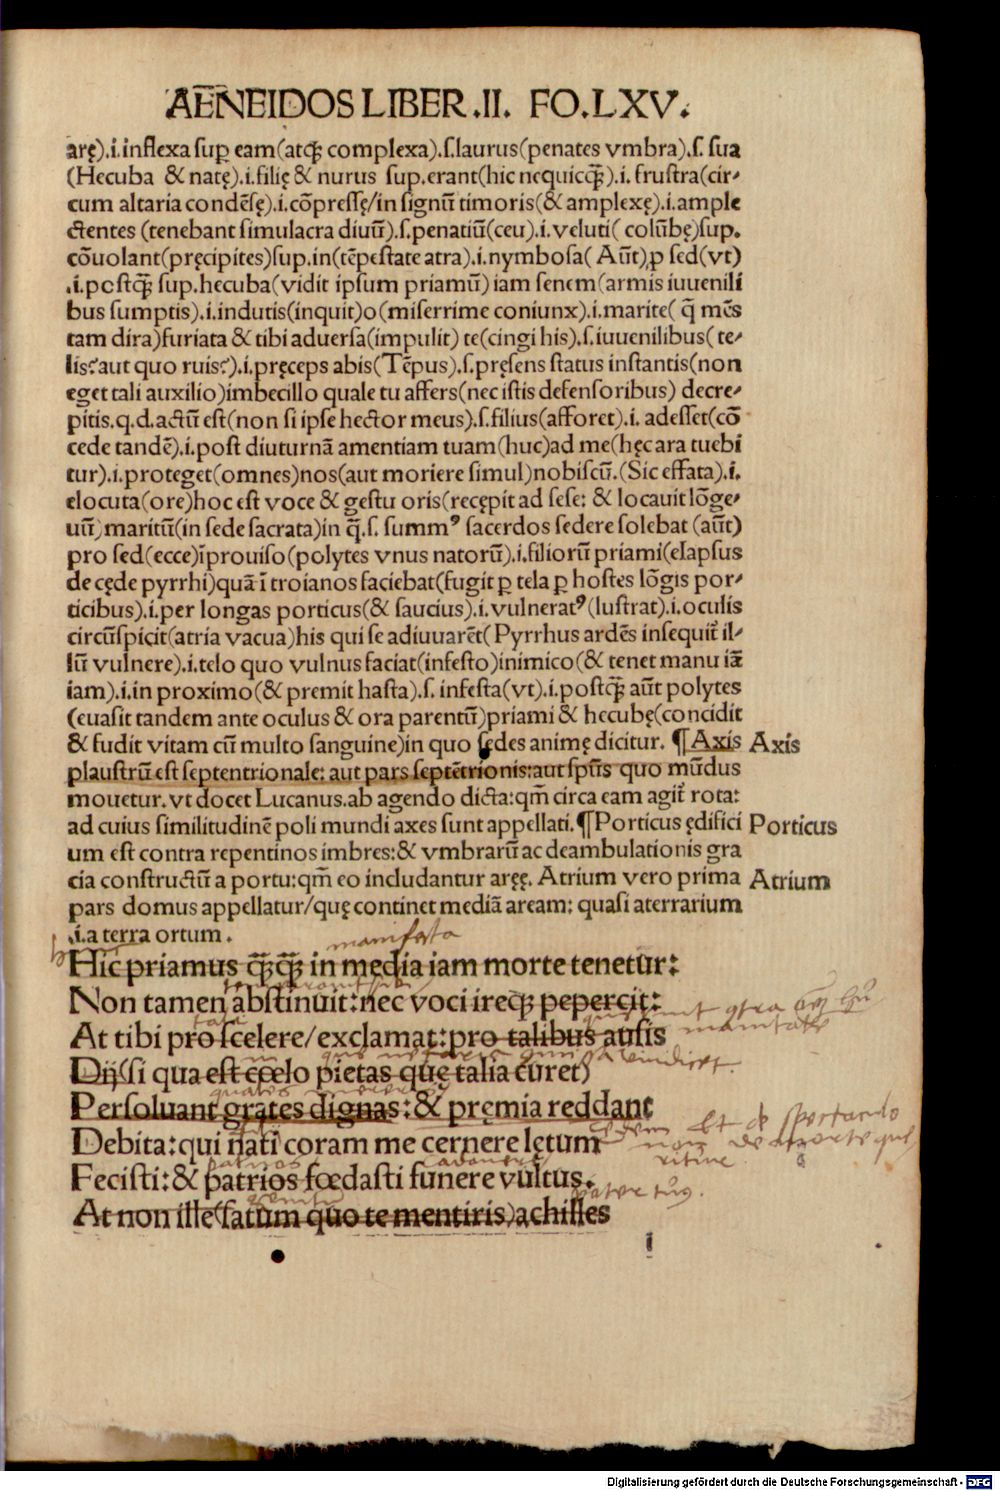 AENEIDOS LIBER .II. FO.LXV.
arę).i.inflexa suꝑ eam(atqꝫ complexa).s.laurus(penates vmbra).s. sua
(Hecuba & natę).i.filię & nurus sup.erant(hic nequicqꝫ̄).i. frustra(cir-
cum altaria condēsę).i.cōpressę/in signū timoris(& amplexę).i.ample
ctentes (tenebant simulacra diuū).s.penatiū(ceu).i.veluti( colūbę)sup.
cōuolant(pręcipites)sup.in(tēpestate atra).i.nymbosa( Aūt)ꝓ sed(vt)
.i.postqꝫ̄ sup.hecuba(vidit ipsum priamū) iam senem(armis iuuenili
bus sumptis).i.indutis(inquit)o(miserrime coniunx).i.marite( q̄ mēs
tam dira)furiata & tibi aduersa(impulit) te(cingi his).s.iuuenilibus( te-
lis?aut quo ruis?).i.pręceps abis(Tēpus).s.pręsens status instantis(non
eget tali auxilio)imbecillo quale tu affers(nec istis defensoribus) decre-
pitis.q.d.actū est(non si ipse hector meus).s.filius(afforet).i. adesset(cō
cede tandē).i.post diuturnā amentiam tuam(huc)ad me(hęc ara tuebi
tur).i.proteget(omnes)nos(aut moriere simul)nobiscū.(Sic effata).i.
elocuta(ore)hoc est voce & gestu oris(recępit ad sese: & locauit lōge-
uū)maritū(in sede sacrata)in q̄.s. summꝰ sacerdos sedere solebat (aūt)
pro sed(ecce)īprouiso(polytes vnus natorū).i.filiorū priami(elapsus
de cęde pyrrhi)quā ī troianos faciebat(fugit ꝑ tela ꝑ hostes lōgis por-
ticibus).i.per longas porticus(& saucius).i.vulneratꝰ(lustrat).i.oculis
circūspicit(atria vacua)his qui se adiuuarēt(Pyrrhus ardēs insequit̃ il-
lū vulnere).i.telo quo vulnus faciat(infesto)inimico(& tenet manu iā
iam).i.in proximo(& premit hasta).s. infesta(vt).i.postqꝫ̄ aūt polytes
(euasit tandem ante oculus & ora parentū)priami & hecubę(concidit
& fudit vitam cū multo sanguine)in quo sedes animę dicitur. ¶Axis Axis
plaustrū est septentrionale: aut pars septētrionis:aut spūs quo mūdus
mouetur. vt docet Lucanus.ab agendo dicta:qm̄ circa eam agit̃ rota:
ad cuius similitudinē poli mundi axes sunt appellati.¶Porticus ędifici Porticus
um est contra repentinos imbres:& vmbrarū ac deambulationis gra
cia constructū a portu:qm̄ eo includantur aręę. Atrium vero prima Atrium
pars domus appellatur/quę continet mediā aream: quasi aterrarium
.i.a terra ortum.
manifesta
Hic priamus qꝫ̄qꝫ̄ in media iam morte tenetur:
Non tamen abstinuit:nec voci ireqꝫ pepercit:
At tibi pro scelere/exclamat:pro talibus ausis
Dij(si qua est cœlo pietas quę talia curet)
Persoluant grates dignas:& pręmia reddant
Debita:qui nati coram me cernere lętum
Fecisti:& patrios fœdasti funere vultus.
At non ille(satum quo te mentiris)achilles
i
Digitalisierung gefördert durch die Deutsche Forschungsgemeinschaft - DFG